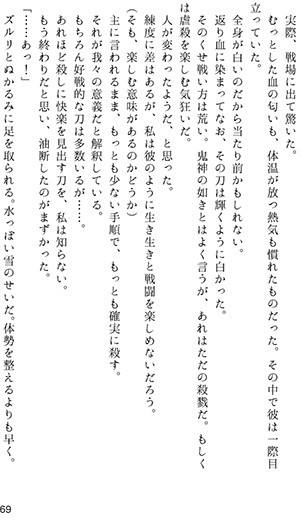 実際、戦場に出て驚いた。
むっとした血の匂いも、体温が放つ熱気も慣れたものだった。その中で彼は一際目
立っていた。
全身が白いのだから当たり前かもしれない。
返り血に染まってなお、その刀は輝くように白かった。
そのくせ戦い方は荒い。鬼神の如きとはよく言うが、あれはただの殺戮だ。もしく
は虐殺を楽しむ気狂いだ。
人が変わったようだ、と思った。
練度に差はあるが、私は彼のように生き生きと戦闘を楽しめないだろう。
（そも、楽しむ意味があるのかどうか）
主に言われるまま、もっとも少ない手順で、もっとも確実に殺す。
それが我々の意義だと解釈している。
もちろん好戦的な刀は多数いるが……。
あれほど殺しに快楽を見出す刀を、私は知らない。
もう終わりだと思い、油断したのがまずかった。
「……あっ！」
ズルリとぬかるみに足を取られる。水っぽい雪のせいだ。体勢を整えるよりも早く。
69